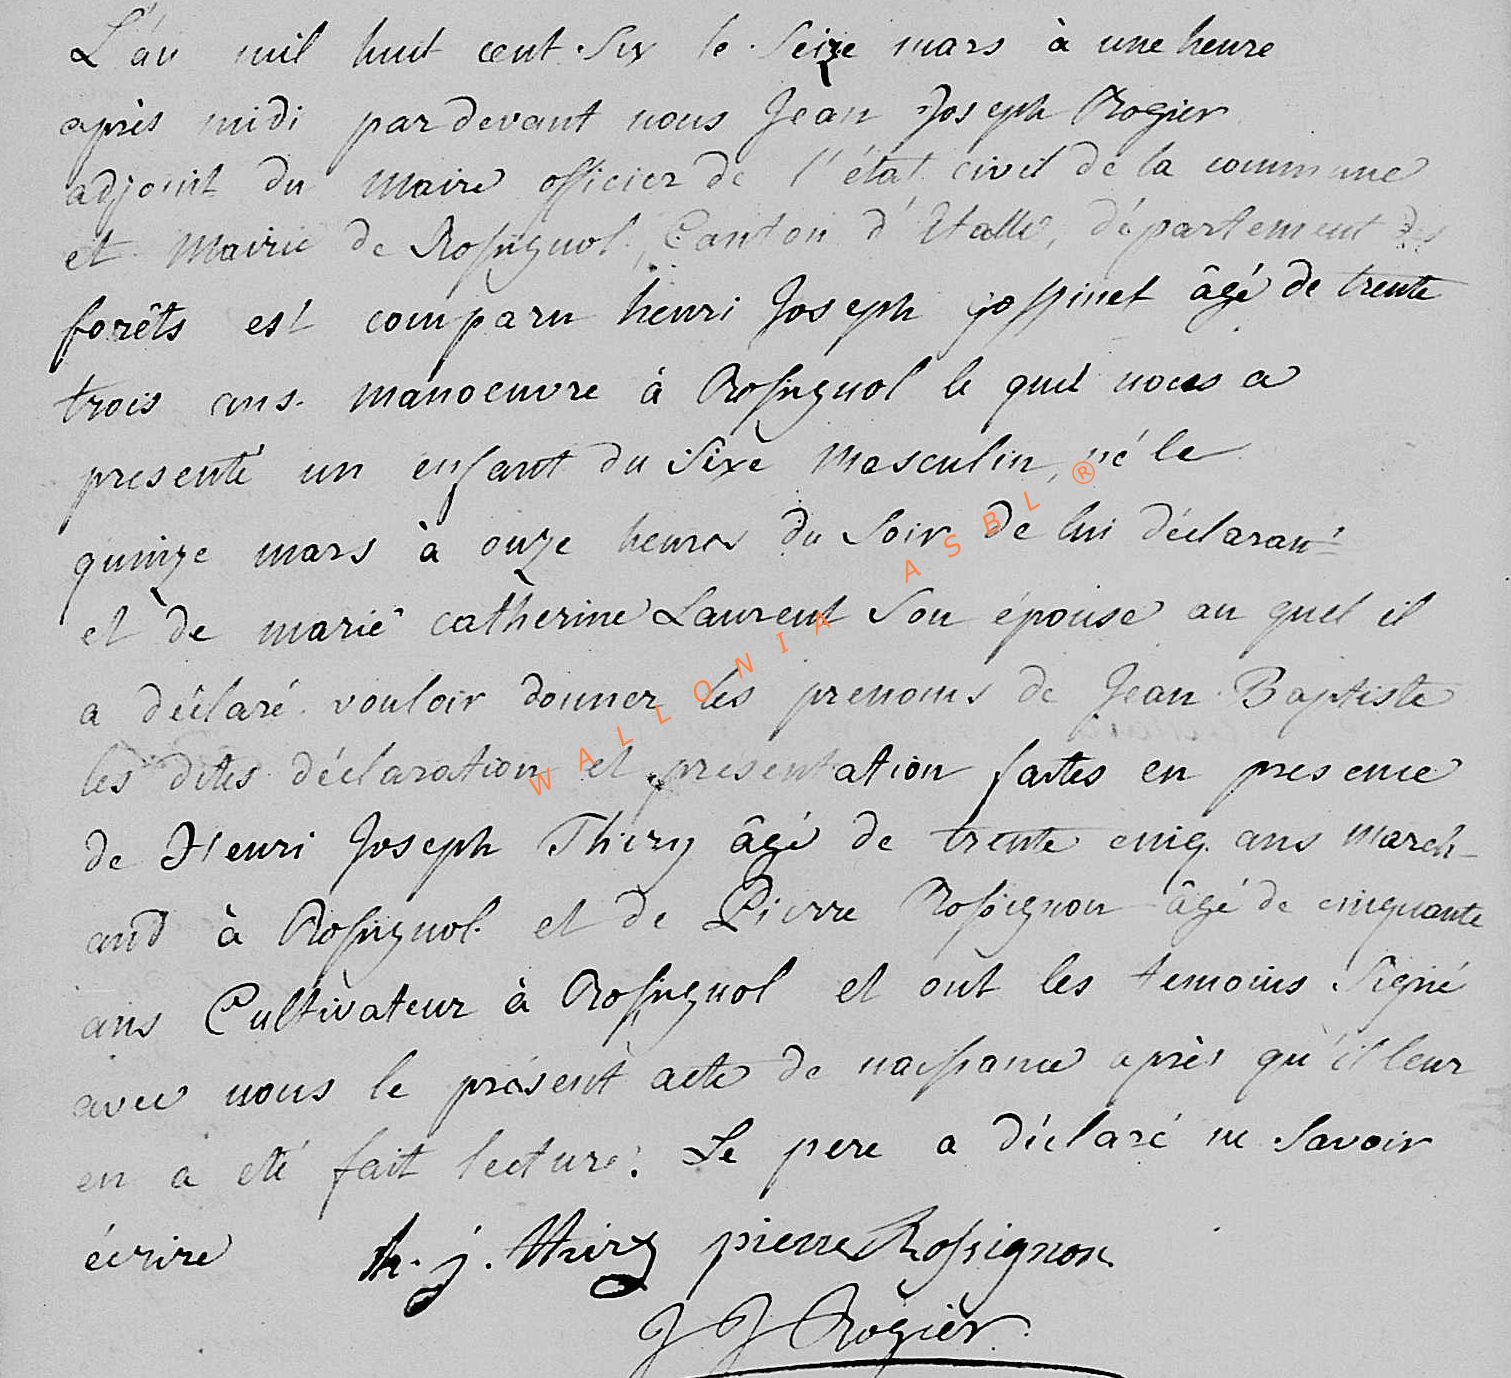 L'an mil huit cent Six le Seize mars à une heure
après midi par devant nous Jean Joseph Rogier
adjoint du Maire officier de l'état civil de la commune
et Mairie de Rossignol, Canton d'Etalle, département des
forêts est comparu henri Joseph goffinet âgé de trente
trois ans manoeuvre à Rossignol le quel nous a
presenté un enfant du Sexe Masculin, né le
quinze mars à onze heures du Soir de lui déclarant
et de marie catherine Laurent Son épouse au quel il
a déclaré vouloir donner les prenoms de Jean Baptiste
les dites déclaration et présentation faites en presence
de Henri Joseph Thiry âgé de trente cinq ans March-
and à Rossignol et de Pierre Rossignon âgé de cinquante
ans Cultivateur à Rossignol et ont les temoins Signé
avec nous le présent acte de naissance après qu'il leur
en a eté fait lecture. Le pere a déclaré ne Savoir
écrire h. j. thiry pierre Rossignon
J J Rogier
WALLONIA ASBL ®